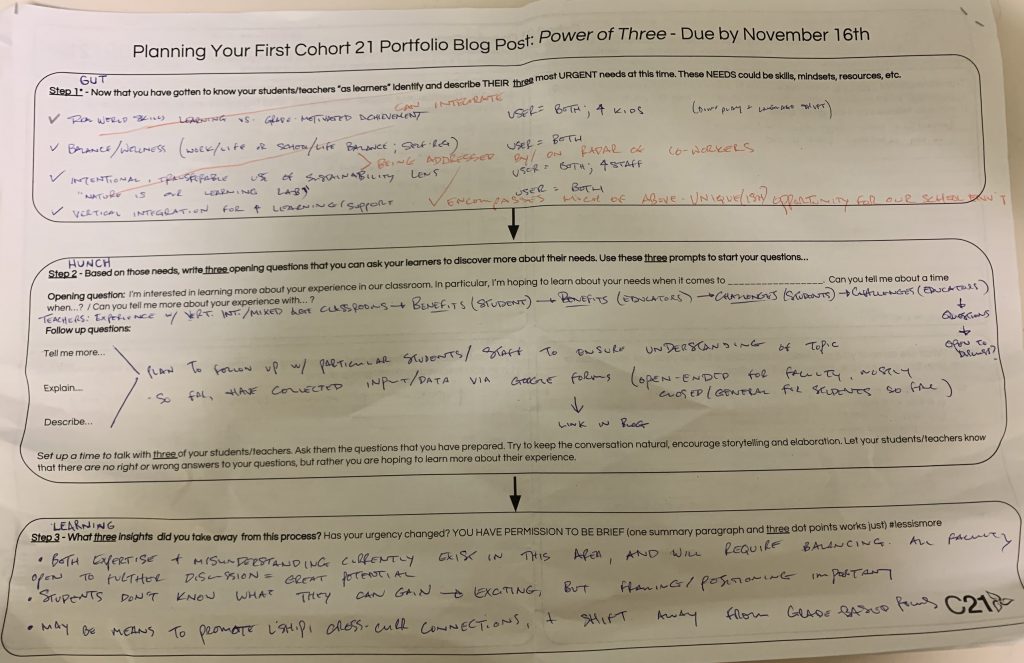 Planning Your First Cohort 21 Portfolio Blog Post: Power of Three - Due by November 16th
GUT
Step 1* - Now that you have gotten to know your students/teachers "as learners" Identify and describe THEIR three most URGENT needs at this time. These NEEDS could be skills, mindsets, resources, etc.
CAN INTEGRATE
✓ REAL WORLD SKILLS LEARNING VS. GRADE-MOTIVATED ACHIEVEMENT USER = BOTH; 4 KIDS
✓ BALANCE/WELLNESS (WORK/LIFE OR SCHOOL/LIFE BALANCE; SELF-REG) USER = BOTH
BEING ADDRESSED BY/ON RADAR OF CO-WORKERS
✓ INTENTIONAL, TRANSFERABLE USE OF SUSTAINABILITY LENS USER = BOTH; 4 STAFF
"NATURE IS OUR LEARNING LAB" USER = BOTH
✓ VERTICAL INTEGRATION FOR 4 LEARNING/SUPPORT ✓ ENCOMPASSES MUCH OF ABOVE. UNIQUE(ISH) OPPORTUNITY FOR OUR SCHOOL
HUNCH
Step 2 - Based on those needs, write three opening questions that you can ask your learners to discover more about their needs. Use these three prompts to start your questions...
Opening question: I'm interested in learning more about your experience in our classroom. In particular, I'm hoping to learn about your needs when it comes to __________________. Can you tell me about a time
when...? / Can you tell me more about your experience with... ?
TEACHERS: EXPERIENCE W/ VERT. INT./MIXED AGE CLASSROOMS → BENEFITS (STUDENT) → BENEFITS (EDUCATORS) → CHALLENGES (STUDENTS) → CHALLENGES (EDUCATORS)
↓
QUESTIONS
↓
OPEN TO DISCUSS?
Follow up questions:
Tell me more...
PLAN TO FOLLOW UP W/ PARTICULAR STUDENTS/STAFF TO ENSURE UNDERSTANDING OF TOPIC
Explain...
• SO FAR, HAVE COLLECTED INPUT/DATA VIA GOOGLE FORMS (OPEN-ENDED FOR FACULTY, MOSTLY
CLOSED/GENERAL FOR STUDENTS SO FAR)
↓
LINK IN BLOG
Describe...
Set up a time to talk with three of your students/teachers. Ask them the questions that you have prepared. Try to keep the conversation natural, encourage storytelling and elaboration. Let your students/teachers know
that there are no right or wrong answers to your questions, but rather you are hoping to learn more about their experience.
LEARNING
Step 3 - What three insights did you take away from this process? Has your urgency changed? YOU HAVE PERMISSION TO BE BRIEF (one summary paragraph and three dot points works just) #lessismore
• BOTH EXPERTISE + MISUNDERSTANDING CURRENTLY EXIST IN THIS AREA, AND WILL REQUIRE BALANCING. ALL FACULTY
OPEN TO FURTHER DISCUSSION = GREAT POTENTIAL
• STUDENTS DON'T KNOW WHAT THEY CAN GAIN → EXCITING, BUT FRAMING/POSITIONING IMPORTANT
• MAY BE MEANS TO PROMOTE L'SHIP, CROSS-CURR CONNECTIONS, + SHIFT AWAY FROM GRADE-BASED FOCUS
C21